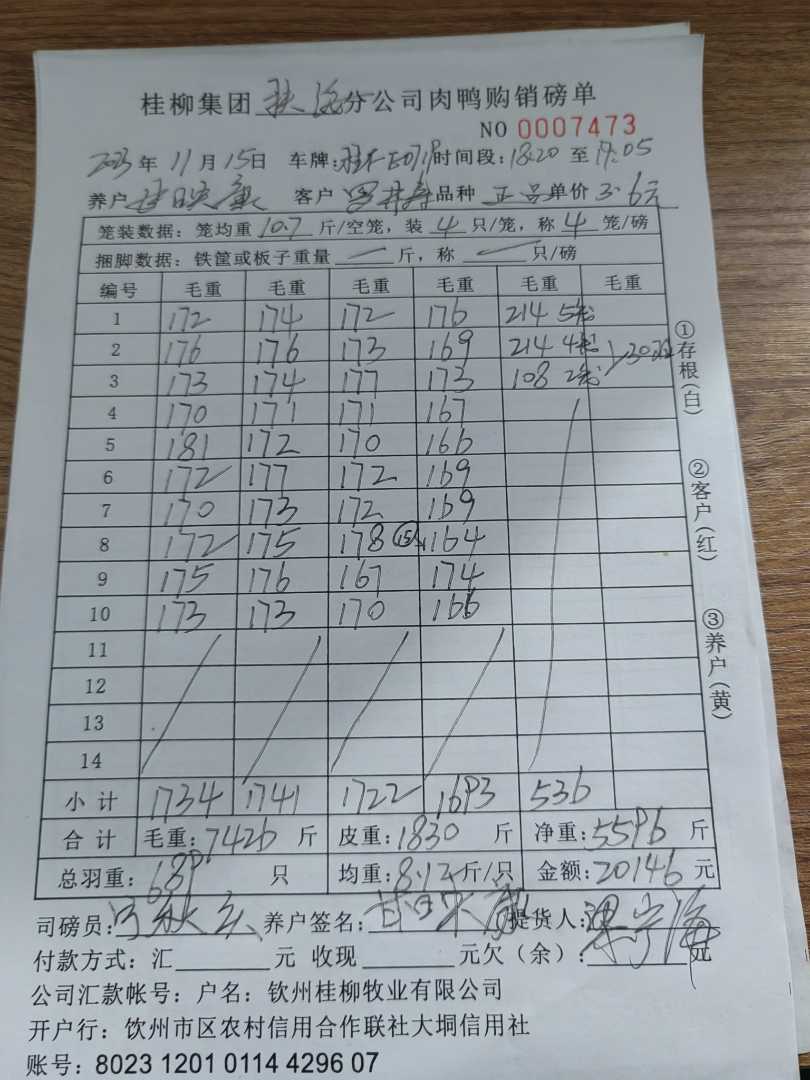 桂柳集团 分公司肉鸭购销磅单
NO 0007473
2023年 11月15日 车牌: 时间段:18:20 至19:05
养户 客户 品种 正品 单价3.6元
笼装数据: 笼均重10.7斤/空笼, 装 4 只/笼, 称 4 笼/磅
捆脚数据: 铁筐或板子重量 — 斤, 称 — 只/磅
编号 毛重 毛重 毛重 毛重 毛重 毛重
1 172 174 172 176 214 5笼
2 176 176 173 169 214 4笼 30只
3 173 174 177 173 108 2笼
4 170 171 171 167
5 181 172 170 166
6 172 177 172 169
7 170 173 172 169
8 172 175 178 (15) 164
9 175 176 167 174
10 173 173 170 166
11
12
13
14
小计 1734 1741 1722 1693 536
合计 毛重:7426 斤 皮重:1830 斤 净重:5596 斤
总羽重: 689 只 均重:8.12斤/只 金额:20146 元
司磅员: 养户签名: 提货人:
付款方式: 汇 元 收现 元欠(余): 元
公司汇款帐号: 户名: 钦州桂柳牧业有限公司
开户行: 饮州市区农村信用合作联社大垌信用社
账号: 8023 1201 0114 4296 07
①存根(白)
②客户(红)
③养户(黄)